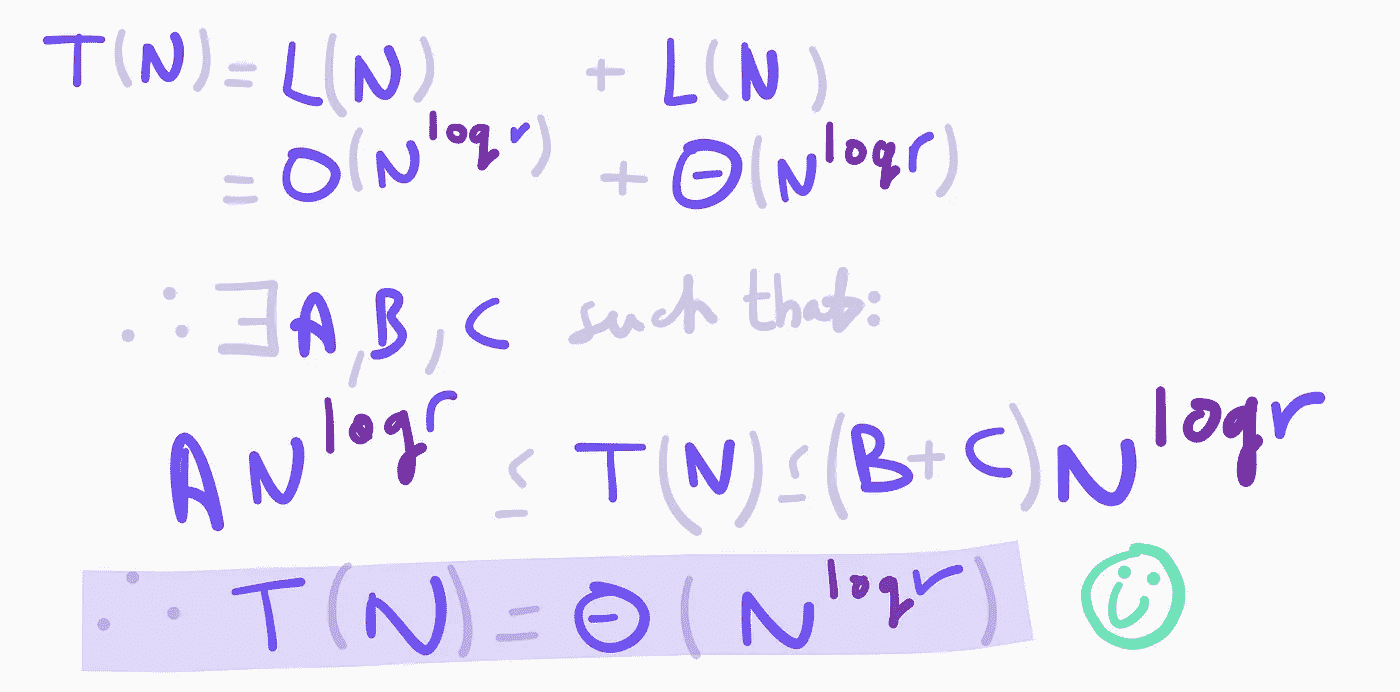 T(N) = L(N) + L(N)
= O(N^logr) + Θ(N^logr)
∴ ∃ A, B, C such that:
A N^logr ≤ T(N) ≤ (B + C) N^logr
∴ T(N) = Θ(N^logr)